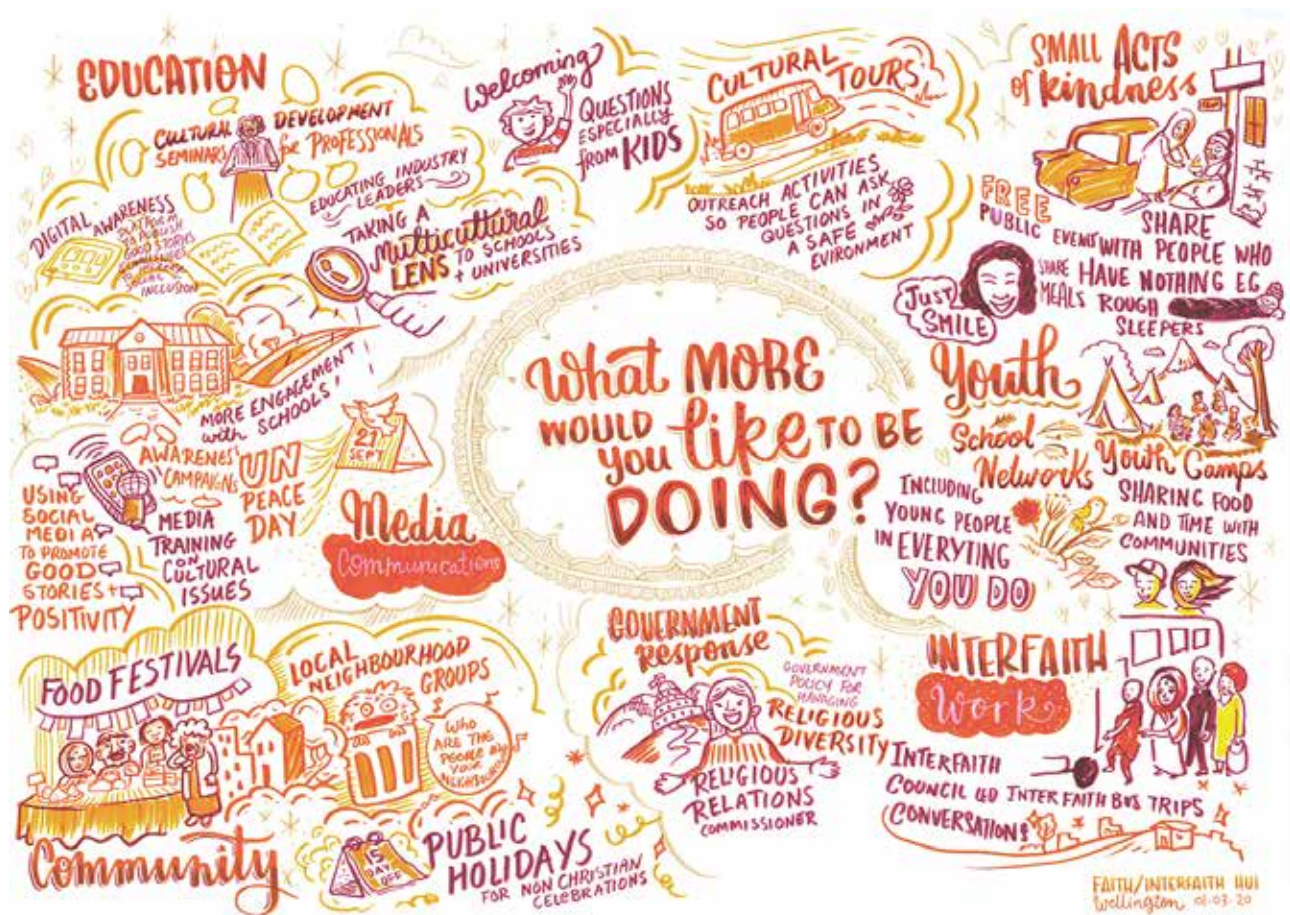 EDUCATION
CULTURAL DEVELOPMENT
SEMINARS for PROFESSIONALS
EDUCATING INDUSTRY
LEADERS
DIGITAL AWARENESS
PLATFORM
TO PUBLISH
GOOD STORIES
SOCIAL
INCLUSION
TAKING A
Multicultural
LENS TO SCHOOLS
+ UNIVERSITIES
MORE ENGAGEMENT
with SCHOOLS
Welcoming
QUESTIONS
ESPECIALLY
from KIDS
CULTURAL TOURS
OUTREACH ACTIVITIES
SO PEOPLE CAN ASK
QUESTIONS IN
A SAFE
EVIRONMENT
SMALL ACTS
of kindness
FREE
PUBLIC EVENT
SHARE
WITH PEOPLE WHO
HAVE NOTHING EG
ROUGH
SLEEPERS
SHARE
MEALS
JUST
SMILE
What MORE
WOULD
you like TO BE
DOING?
Youth
School
Networks
Youth Camps
INCLUDING
YOUNG PEOPLE
IN EVERYTING
YOU DO
SHARING FOOD
AND TIME WITH
COMMUNITIES
AWARENES
CAMPAIGNS
UN
PEACE
DAY
21
SEPT
Media
Communications
USING
SOCIAL
MEDIA
TO PROMOTE
GOOD
STORIES +
POSITIVITY
MEDIA
TRAINING
ON
CULTURAL
ISSUES
FOOD FESTIVALS
LOCAL
NEIGHBOURHOOD
GROUPS
WHO
ARE THE
PEOPLE IN
YOUR
Community
15
DAY
OFF
PUBLIC
HOLIDAYS
FOR NON CHRISTIAN
CELEBRATIONS
GOVERNMENT
Response
GOVERNMENT
POLICY FOR
MANAGING
RELIGIOUS
DIVERSITY
RELIGIOUS
RELATIONS
COMMISSIONER
INTERFAITH
Work
INTERFAITH
COUNCIL LED
CONVERSATIONS
INTER FAITH BUS TRIPS
FAITH/INTERFAITH HUI
Wellington 01.03.20